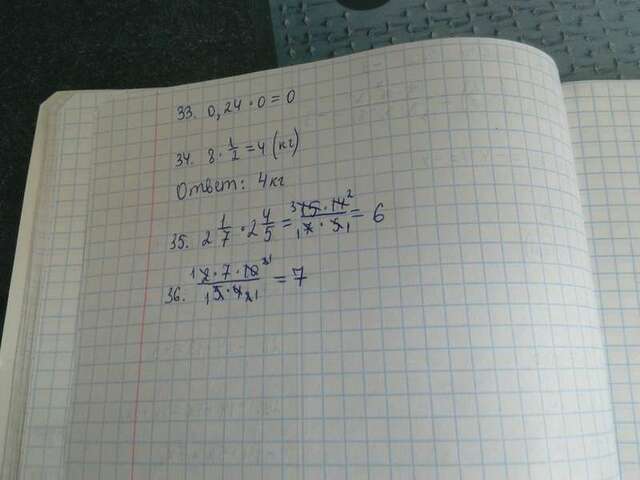 33. 0,24 · 0 = 0
34. 8 · 1/2 = 4 (кг)
Ответ: 4кг
35. 2 1/7 · 2 4/5 = 15 · 14 / 7 · 5 = 6
36. 2 · 7 · 10 / 5 · 4 = 7